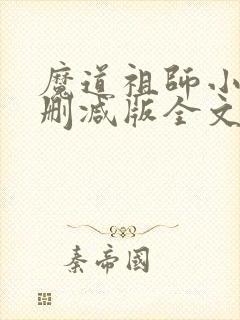 魔道祖師小
刪減版全文
秦帝國